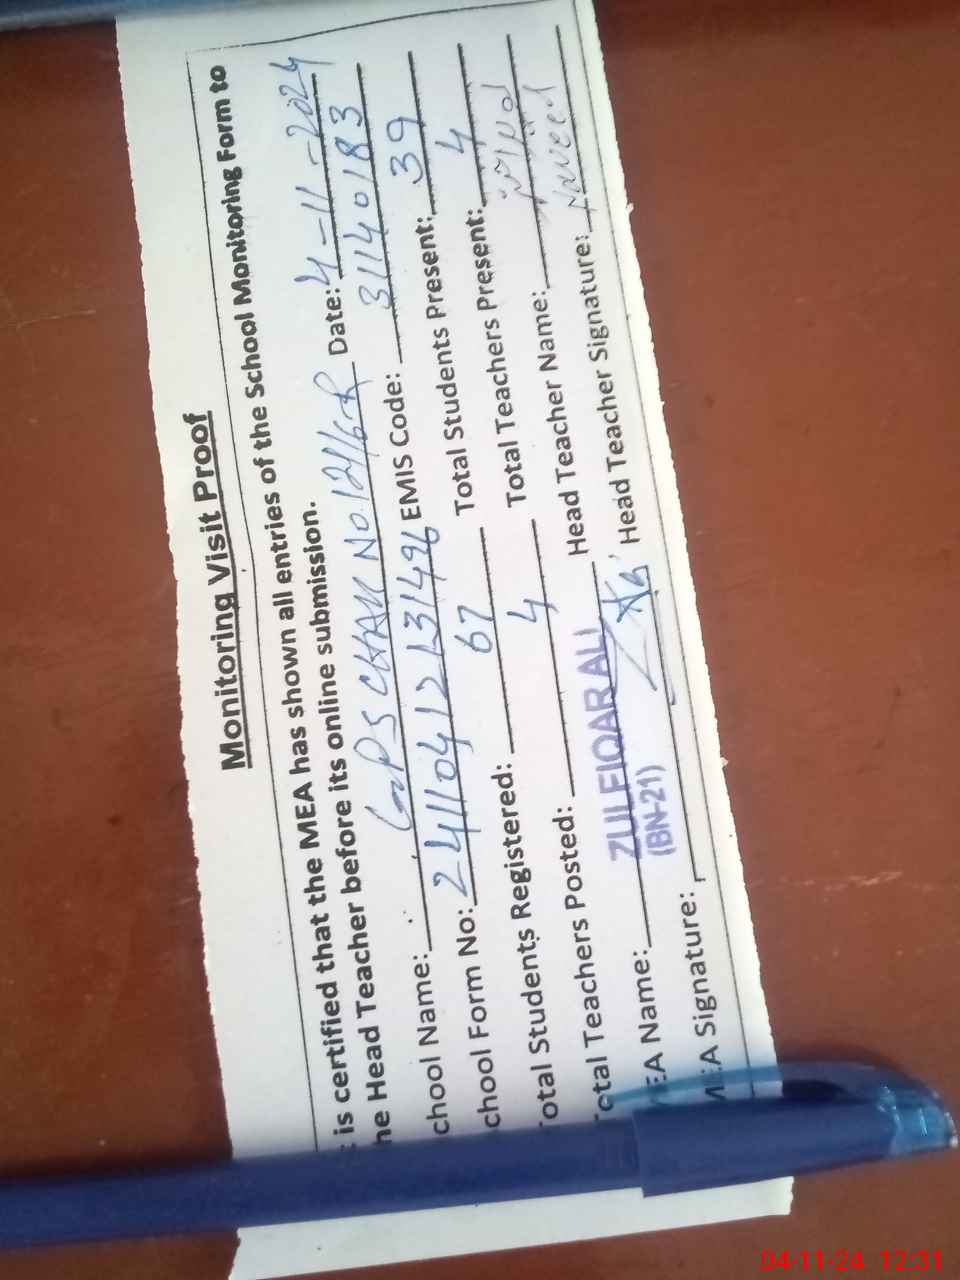 Monitoring Visit Proof
is certified that the MEA has shown all entries of the School Monitoring Form to
he Head Teacher before its online submission.
chool Name: GPS CHAK No. 121/6-R Date: 4-11-2024
chool Form No: EMIS Code: 31140183
otal Students Registered: 67 Total Students Present: 39
otal Teachers Posted: 4 Total Teachers Present: 4
EA Name: ZULFIQAR ALI Head Teacher Name:
(BN-21)
MEA Signature: Head Teacher Signature: Naveed
04-11-24 12:31